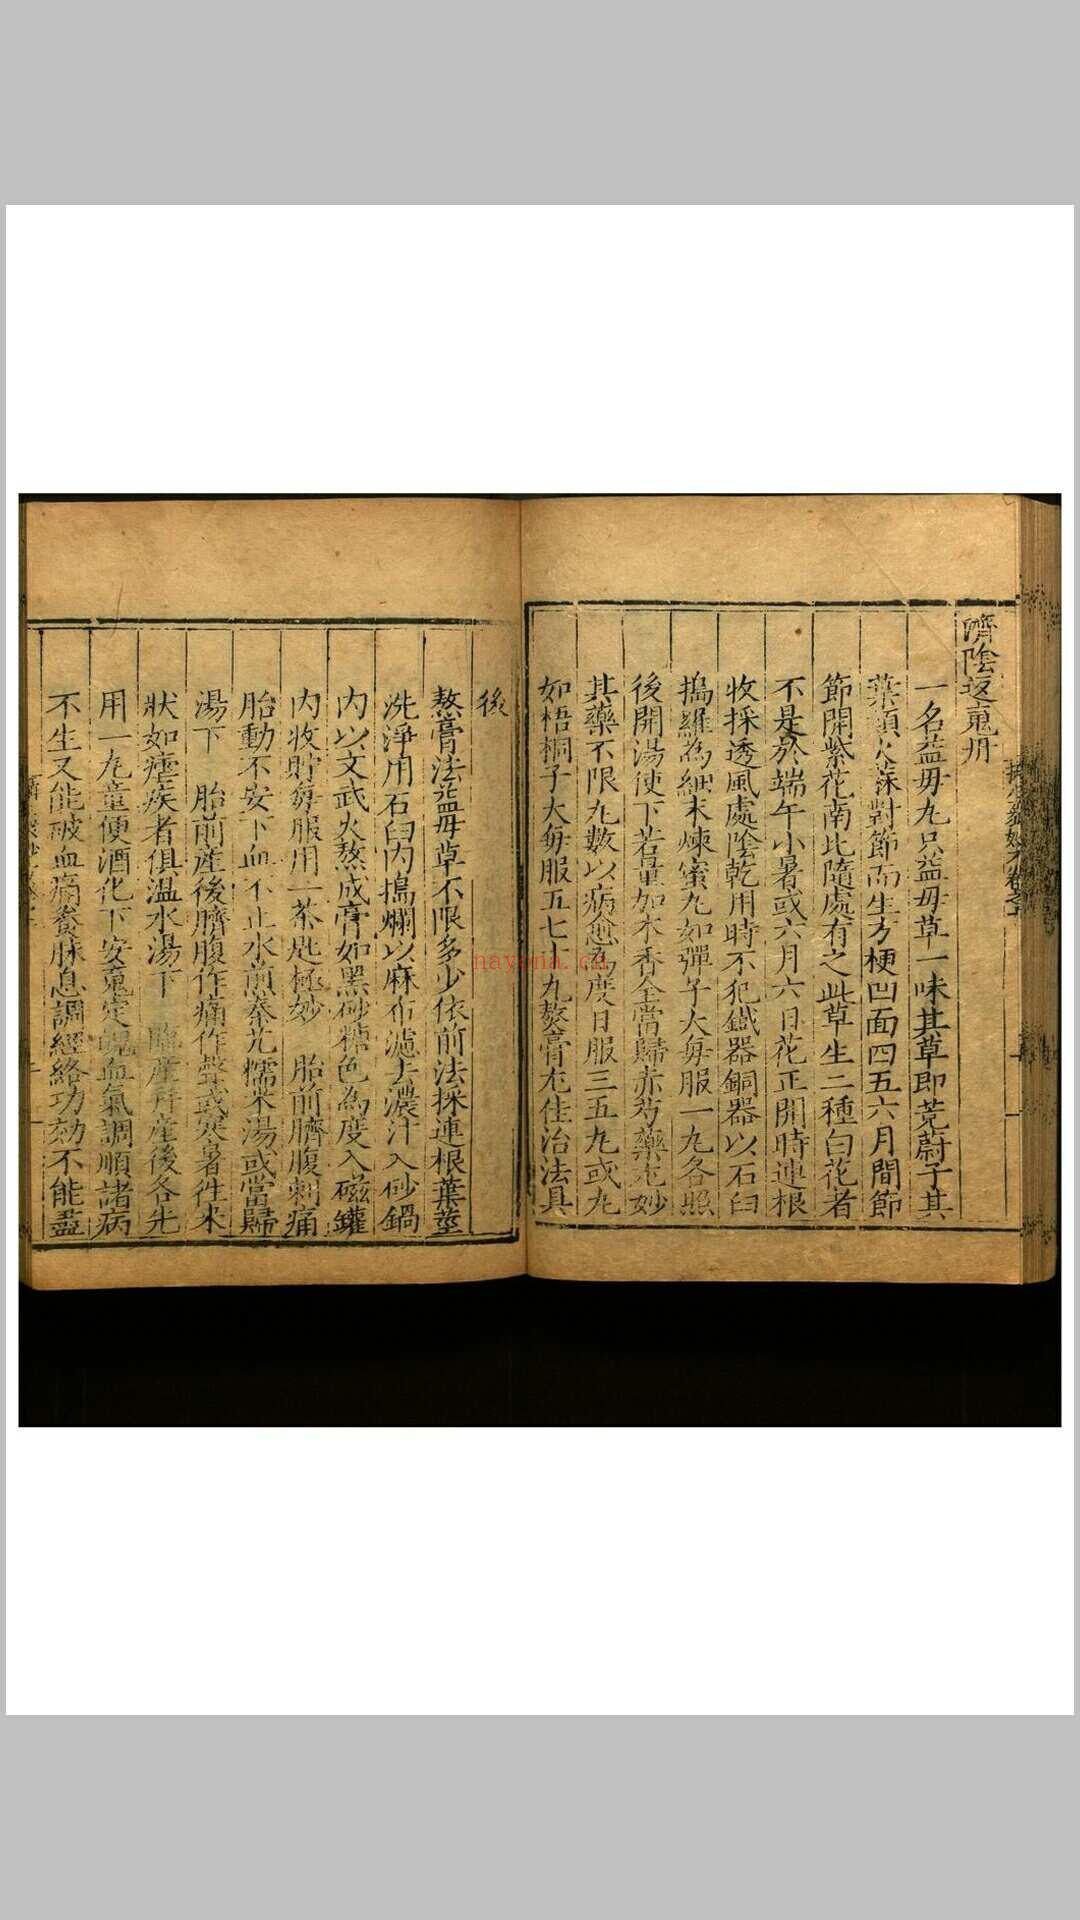 濟陰返䰟丹
一名益毋丸只益毋草一味其草即茺蔚子其
葉類火蔴對節而生方梗凹面四五六月間節
節開紫花南北隨處有之此草生二種白花者
不是於端午小暑或六月六日花正開時連根
收採透風處陰乾用時不犯鐵器銅器以石臼
搗羅為細末煉蜜丸如彈子大每服一丸各照
後開湯使下若量加木香全當歸赤芍藥尤妙
其藥不限丸數以病愈為度日服三五丸或丸
如梧桐子大每服五七十丸熬膏尤佳治法具
後
熬膏法益毋草不限多少依前法採連根葉莖
洗淨用石臼内搗爛以麻布濾去濃汁入砂鍋
内以文武火熬成膏如黑砂糖色為度入磁罐
内收貯每服用一茶匙極妙 胎前臍腹刺痛
胎動不安下血不止水煎秦艽糯米湯或當歸
湯下 胎前産後臍腹作痛作聲或寒暑徃来
狀如瘧疾者俱温水湯下 臨産并産後各先
用一丸童便酒化下安䰟定魄血氣調順諸病
不生又能破血痛養脉息調經絡功効不能盡
nayona.cn